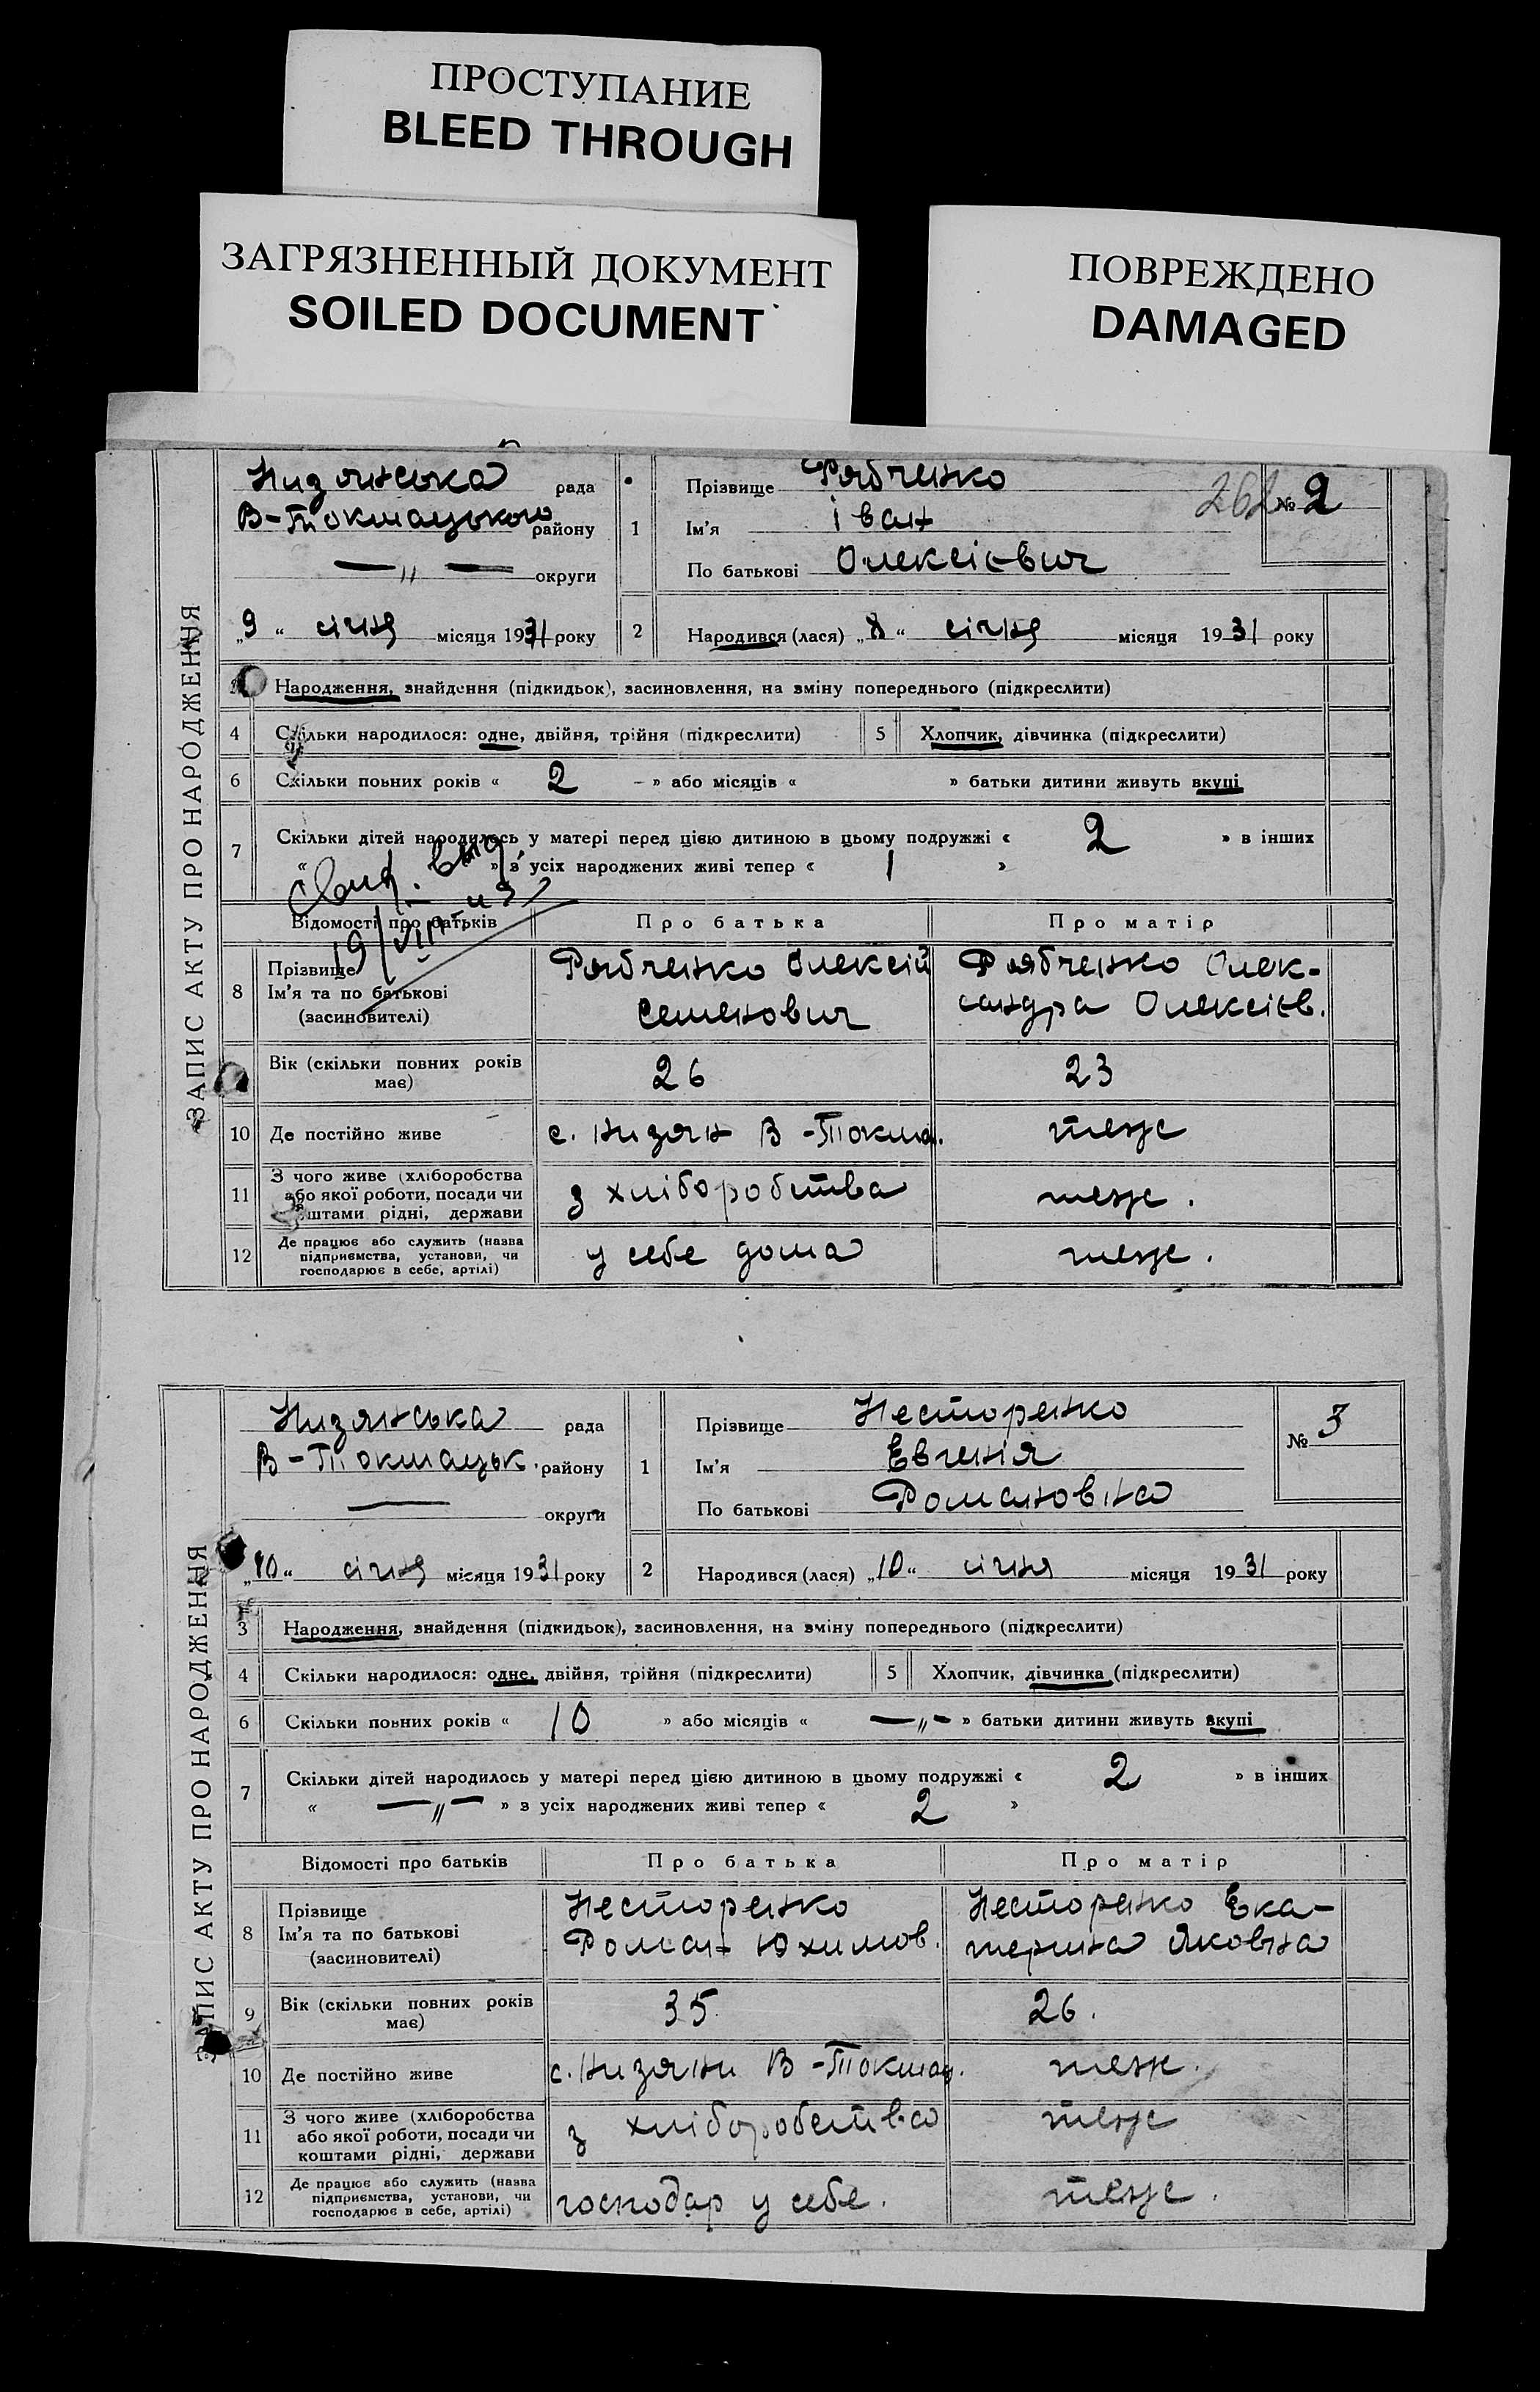 ПРОСТУПАНИЕ
BLEED THROUGH
ЗАГРЯЗНЕННЫЙ ДОКУМЕНТ
SOILED DOCUMENT
ПОВРЕЖДЕНО
DAMAGED
ЗАПИС АКТУ ПРО НАРОДЖЕННЯ
Низянська рада
В-Токмацького району
—〃— округи
„9“ січня місяця 1931 року
1 Прізвище Рябченко
Ім'я Іван
По батькові Олексієвич
262 № 2
2 Народився (лася) „8“ січня місяця 1931 року
Народження, знайдення (підкидьок), засиновлення, на зміну попереднього (підкреслити)
4 Скільки народилося: одне, двійня, трійня (підкреслити) 5 Хлопчик, дівчинка (підкреслити)
6 Скільки повних років « 2 – » або місяців « » батьки дитини живуть вкупі
7 Скільки дітей народилось у матері перед цією дитиною в цьому подружжі « 2 » в інших
« » з усіх народжених живі тепер « 1 »
19/VIII
Відомості про батьків Про батька Про матір
8 Прізвище Ім'я та по батькові (засиновителі)
Рябченко Олексій Семенович
Рябченко Олександра Олексієв.
Вік (скільки повних років має) 26 23
10 Де постійно живе с. Низян В-Токма. теж
11 З чого живе (хліборобства або якої роботи, посади чи коштами рідні, держави з хліборобства теж.
12 Де працює або служить (назва підприємства, установи, чи господарює в себе, артілі) у себе дома теж.
ЗАПИС АКТУ ПРО НАРОДЖЕННЯ
Низянська рада
В-Токмацьк. району
— округи
„10“ січня місяця 1931 року
1 Прізвище Несторенко
Ім'я Евгенія
По батькові Романовна
№ 3
2 Народився (лася) „10“ січня місяця 1931 року
3 Народження, знайдення (підкидьок), засиновлення, на зміну попереднього (підкреслити)
4 Скільки народилося: одне, двійня, трійня (підкреслити) 5 Хлопчик, дівчинка (підкреслити)
6 Скільки повних років « 10 » або місяців « —〃— » батьки дитини живуть вкупі
7 Скільки дітей народилось у матері перед цією дитиною в цьому подружжі « 2 » в інших
« —〃— » з усіх народжених живі тепер « 2 »
Відомості про батьків Про батька Про матір
8 Прізвище Ім'я та по батькові (засиновителі)
Несторенко Роман Юхимов.
Несторенко Екатерина Яковна
9 Вік (скільки повних років має) 35 26.
10 Де постійно живе с. Низяни В-Токмац. теж.
11 З чого живе (хліборобства або якої роботи, посади чи коштами рідні, держави з хліборобства теж
12 Де працює або служить (назва підприємства, установи, чи господарює в себе, артілі) господар у себе. теж.